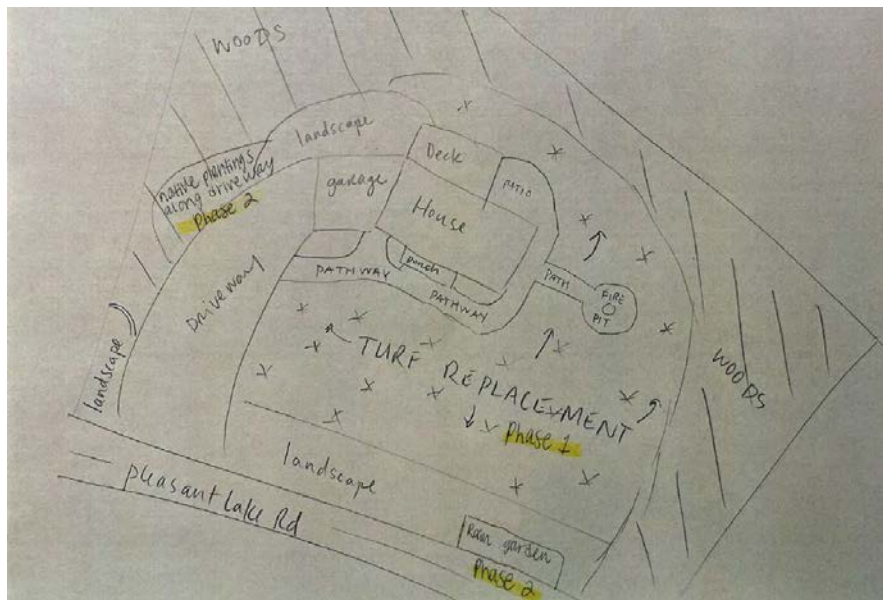 WOODS
landscape
native plantings
along driveway
Phase 2
garage
Deck
PATIO
House
Driveway
PATHWAY
porch
PATHWAY
PATH
FIRE
PIT
landscape
TURF REPLACEMENT
Phase 1
WOODS
landscape
Pleasant Lake Rd
Rain garden
Phase 2